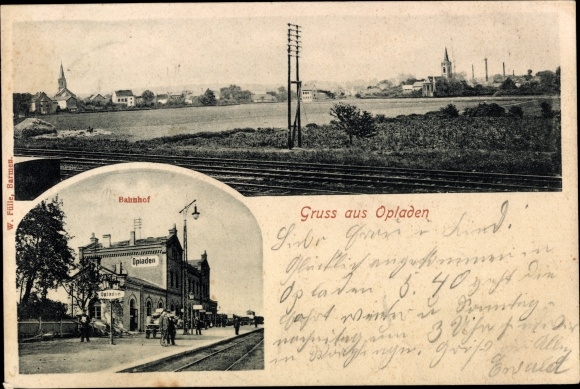 W. Fülle, Barmen.
Bahnhof
Opladen
Opladen
Gruss aus Opladen
Liebe Frau u. Kind!
Glücklich angekommen in
Opladen 5.40 geht die
Fahrt weiter u. Sonntag-
nachmittag um 3 Uhr
in
Gruß an Alle
Ewald